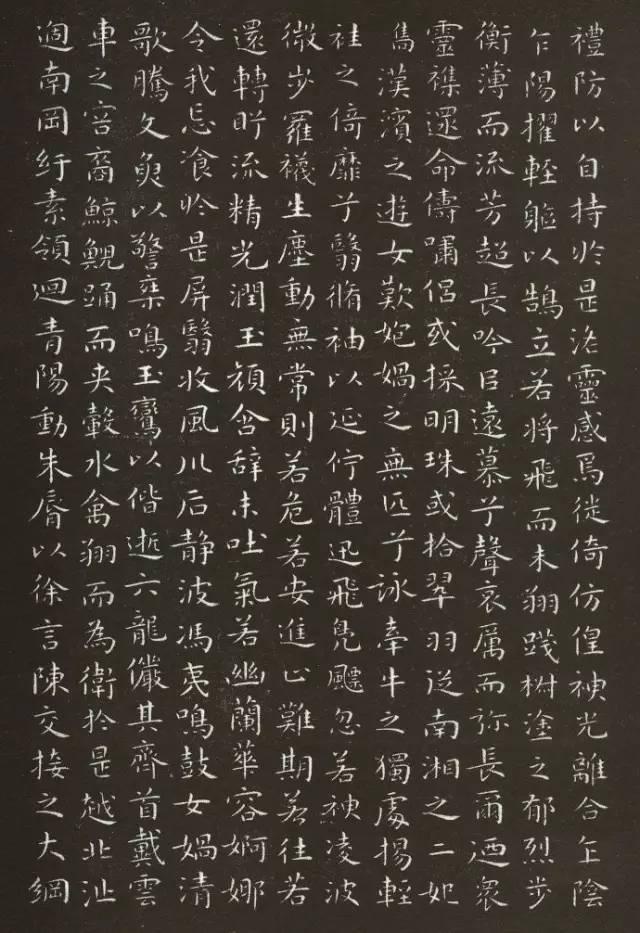 禮防以自持於是洛靈感焉徙倚仿偟神光離合乍陰
乍陽擢輕軀以鵠立若將飛而未翔踐椒塗之郁烈步
衡薄而流芳超長吟以遠慕兮聲哀厲而弥長爾迺眾
靈襍遝命儔嘯侶或採明珠或拾翠羽從南湘之二妃
攜漢濱之遊女歎㚿媧之無匹兮詠牽牛之獨處揚輕
袿之倚靡兮翳脩袖以延佇體迅飛鳧飄忽若神凌波
微步羅襪生塵動無常則若危若安進止難期若往若
還轉眄流精光潤玉顏含辭未吐氣若幽蘭華容婀娜
令我忘湌於是屏翳收風川后静波馮夷鳴鼓女媧清
歌騰文魚以警椉鳴玉鸞以偕逝六龍儼其齊首戴雲
車之容裔鯨鯢踊而夾轂水禽翔而為衛於是越北沚
過南岡紆素領迴青陽動朱脣以徐言陳交接之大綱